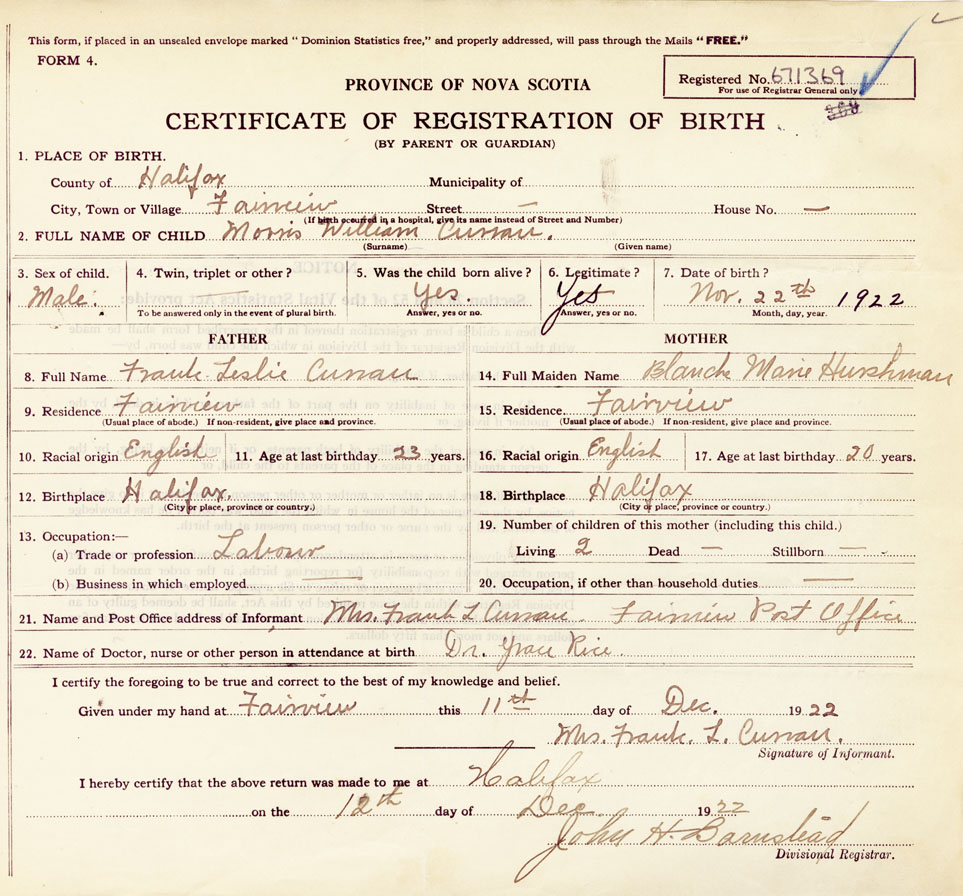 This form, if placed in an unsealed envelope marked "Dominion Statistics free," and properly addressed, will pass through the Mails "FREE."
FORM 4.
PROVINCE OF NOVA SCOTIA
Registered No. 671369
For use of Registrar General only
CERTIFICATE OF REGISTRATION OF BIRTH
(BY PARENT OR GUARDIAN)
1. PLACE OF BIRTH.
County of Halifax Municipality of
City, Town or Village Fairview Street — House No. —
(If birth occurred in a hospital, give its name instead of Street and Number)
2. FULL NAME OF CHILD Morris William Curran.
(Surname) (Given name)
3. Sex of child. 4. Twin, triplet or other? 5. Was the child born alive? 6. Legitimate? 7. Date of birth?
Male. — Yes. Yes Nov. 22nth 1922
To be answered only in the event of plural birth. Answer, yes or no. Answer, yes or no. Month, day, year.
FATHER MOTHER
8. Full Name Frank Leslie Curran 14. Full Maiden Name Blanche Marie Hurshman
9. Residence Fairview 15. Residence. Fairview
(Usual place of abode.) If non-resident, give place and province. (Usual place of abode.) If non-resident, give place and province.
10. Racial origin English 11. Age at last birthday 23 years. 16. Racial origin English 17. Age at last birthday 20 years.
12. Birthplace Halifax. 18. Birthplace Halifax
(City or place, province or country.) (City or place, province or country.)
13. Occupation:— 19. Number of children of this mother (including this child.)
(a) Trade or profession Labour Living 2 Dead — Stillborn —
(b) Business in which employed — 20. Occupation, if other than household duties —
21. Name and Post Office address of Informant Mrs. Frank L Curran. Fairview Post Office
22. Name of Doctor, nurse or other person in attendance at birth Dr. Grace Rice.
I certify the foregoing to be true and correct to the best of my knowledge and belief.
Given under my hand at Fairview this 11th day of Dec. 1922
Mrs. Frank. L. Curran.
Signature of Informant.
I hereby certify that the above return was made to me at Halifax
on the 12th day of Dec. 1922
John H. Barnstead
Divisional Registrar.